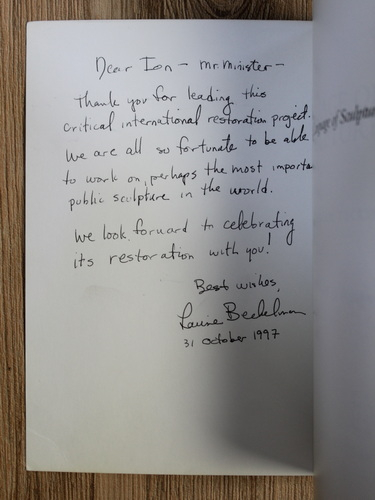 Dear Ion - Mr. Minister -
Thank you for leading this
critical international restoration project.
We are all so fortunate to be able
to work on, perhaps the most importa
public sculpture in the world.
We look forward to celebrating
its restoration with you!
Best wishes,
Laurie Beckelman
31 October 1997
of Sculptur